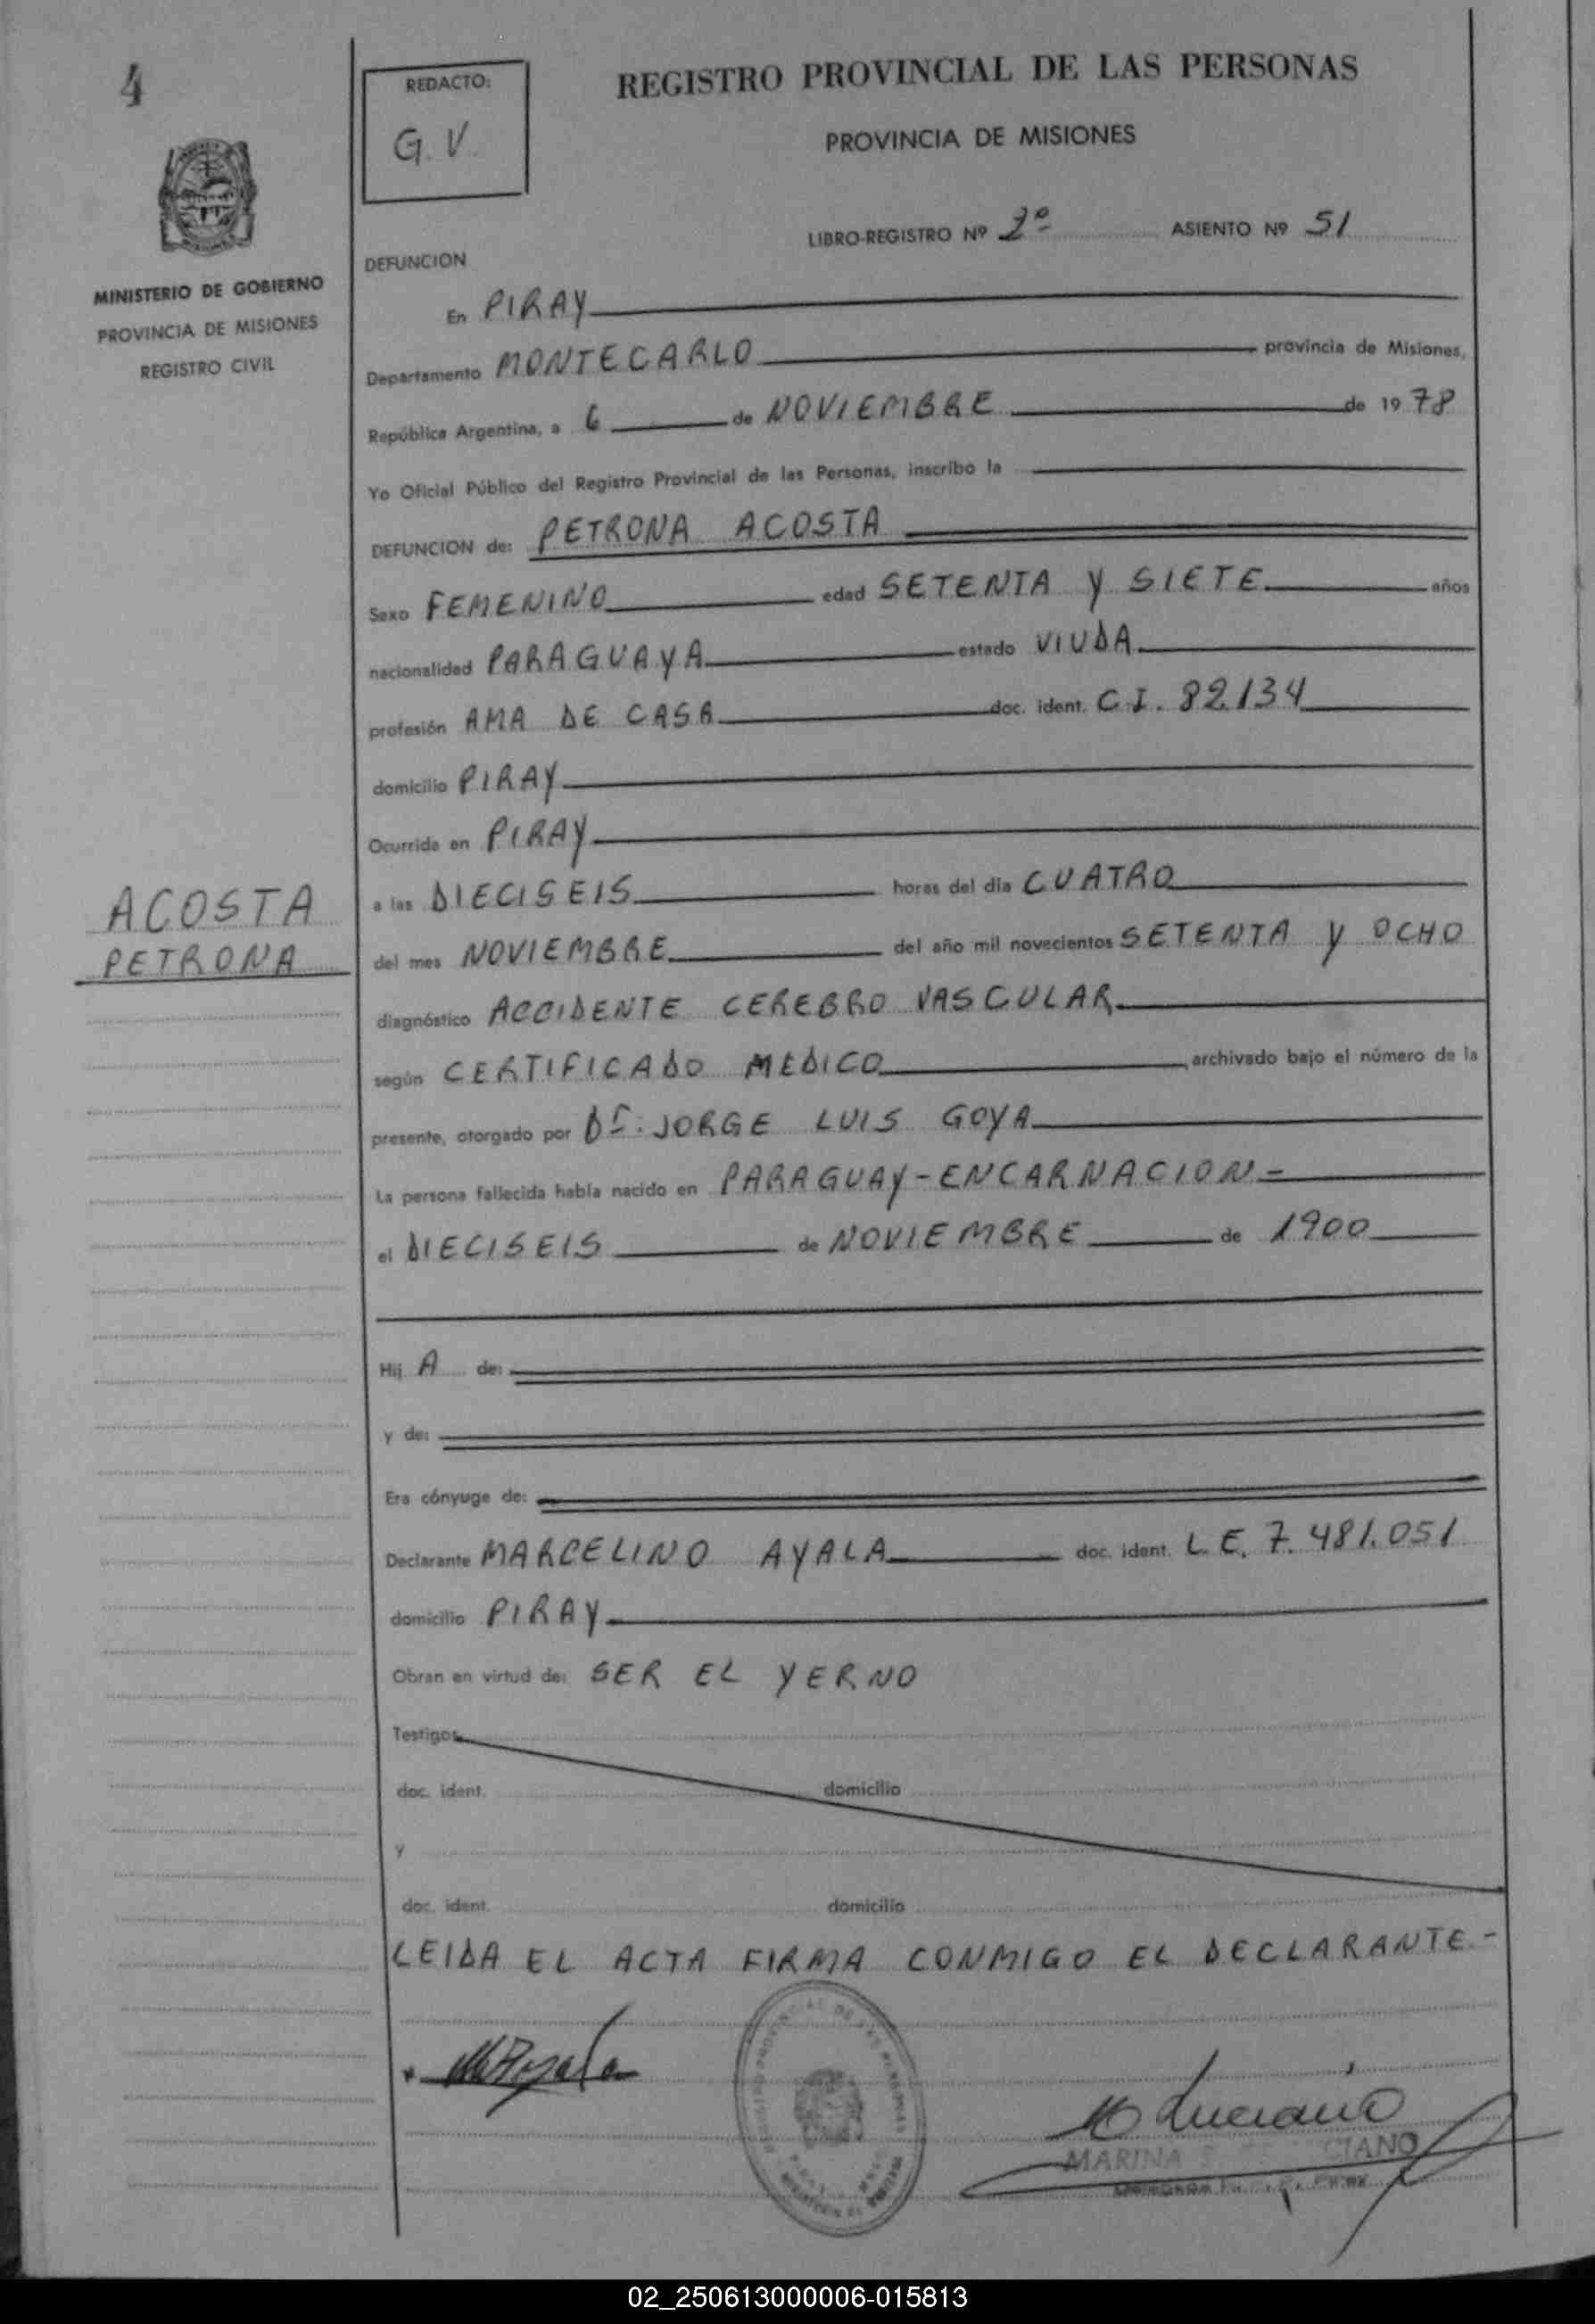 4
REDACTO:
G. V.
REGISTRO PROVINCIAL DE LAS PERSONAS
PROVINCIA DE MISIONES
LIBRO-REGISTRO Nº 2º ASIENTO Nº 51
MINISTERIO DE GOBIERNO
PROVINCIA DE MISIONES
REGISTRO CIVIL
DEFUNCION
En PIRAY
Departamento MONTECARLO provincia de Misiones,
República Argentina, a 6 de NOVIEMBRE de 1978
Yo Oficial Público del Registro Provincial de las Personas, inscribo la
DEFUNCION de: PETRONA ACOSTA
Sexo FEMENINO edad SETENTA y SIETE años
nacionalidad PARAGUAYA estado VIUDA
profesión AMA DE CASA doc. ident. C.I. 82.134
domicilio PIRAY
Ocurrida en PIRAY
a las DIECISEIS horas del día CUATRO
ACOSTA
PETRONA
del mes NOVIEMBRE del año mil novecientos SETENTA y OCHO
diagnóstico ACCIDENTE CEREBRO VASCULAR
según CERTIFICADO MEDICO , archivado bajo el número de la
presente, otorgado por Dr. JORGE LUIS GOYA
La persona fallecida había nacido en PARAGUAY-ENCARNACION-
el DIECISEIS de NOVIEMBRE de 1900
Hij A de:
y de:
Era cónyuge de:
Declarante MARCELINO AYALA doc. ident. L.E. 7.481.051
domicilio PIRAY
Obran en virtud de: SER EL YERNO
Testigos
doc. ident. domicilio
y
doc. ident. domicilio
LEIDA EL ACTA FIRMA CONMIGO EL DECLARANTE.-
M Luciano
MARINA CIANO
02_250613000006-015813